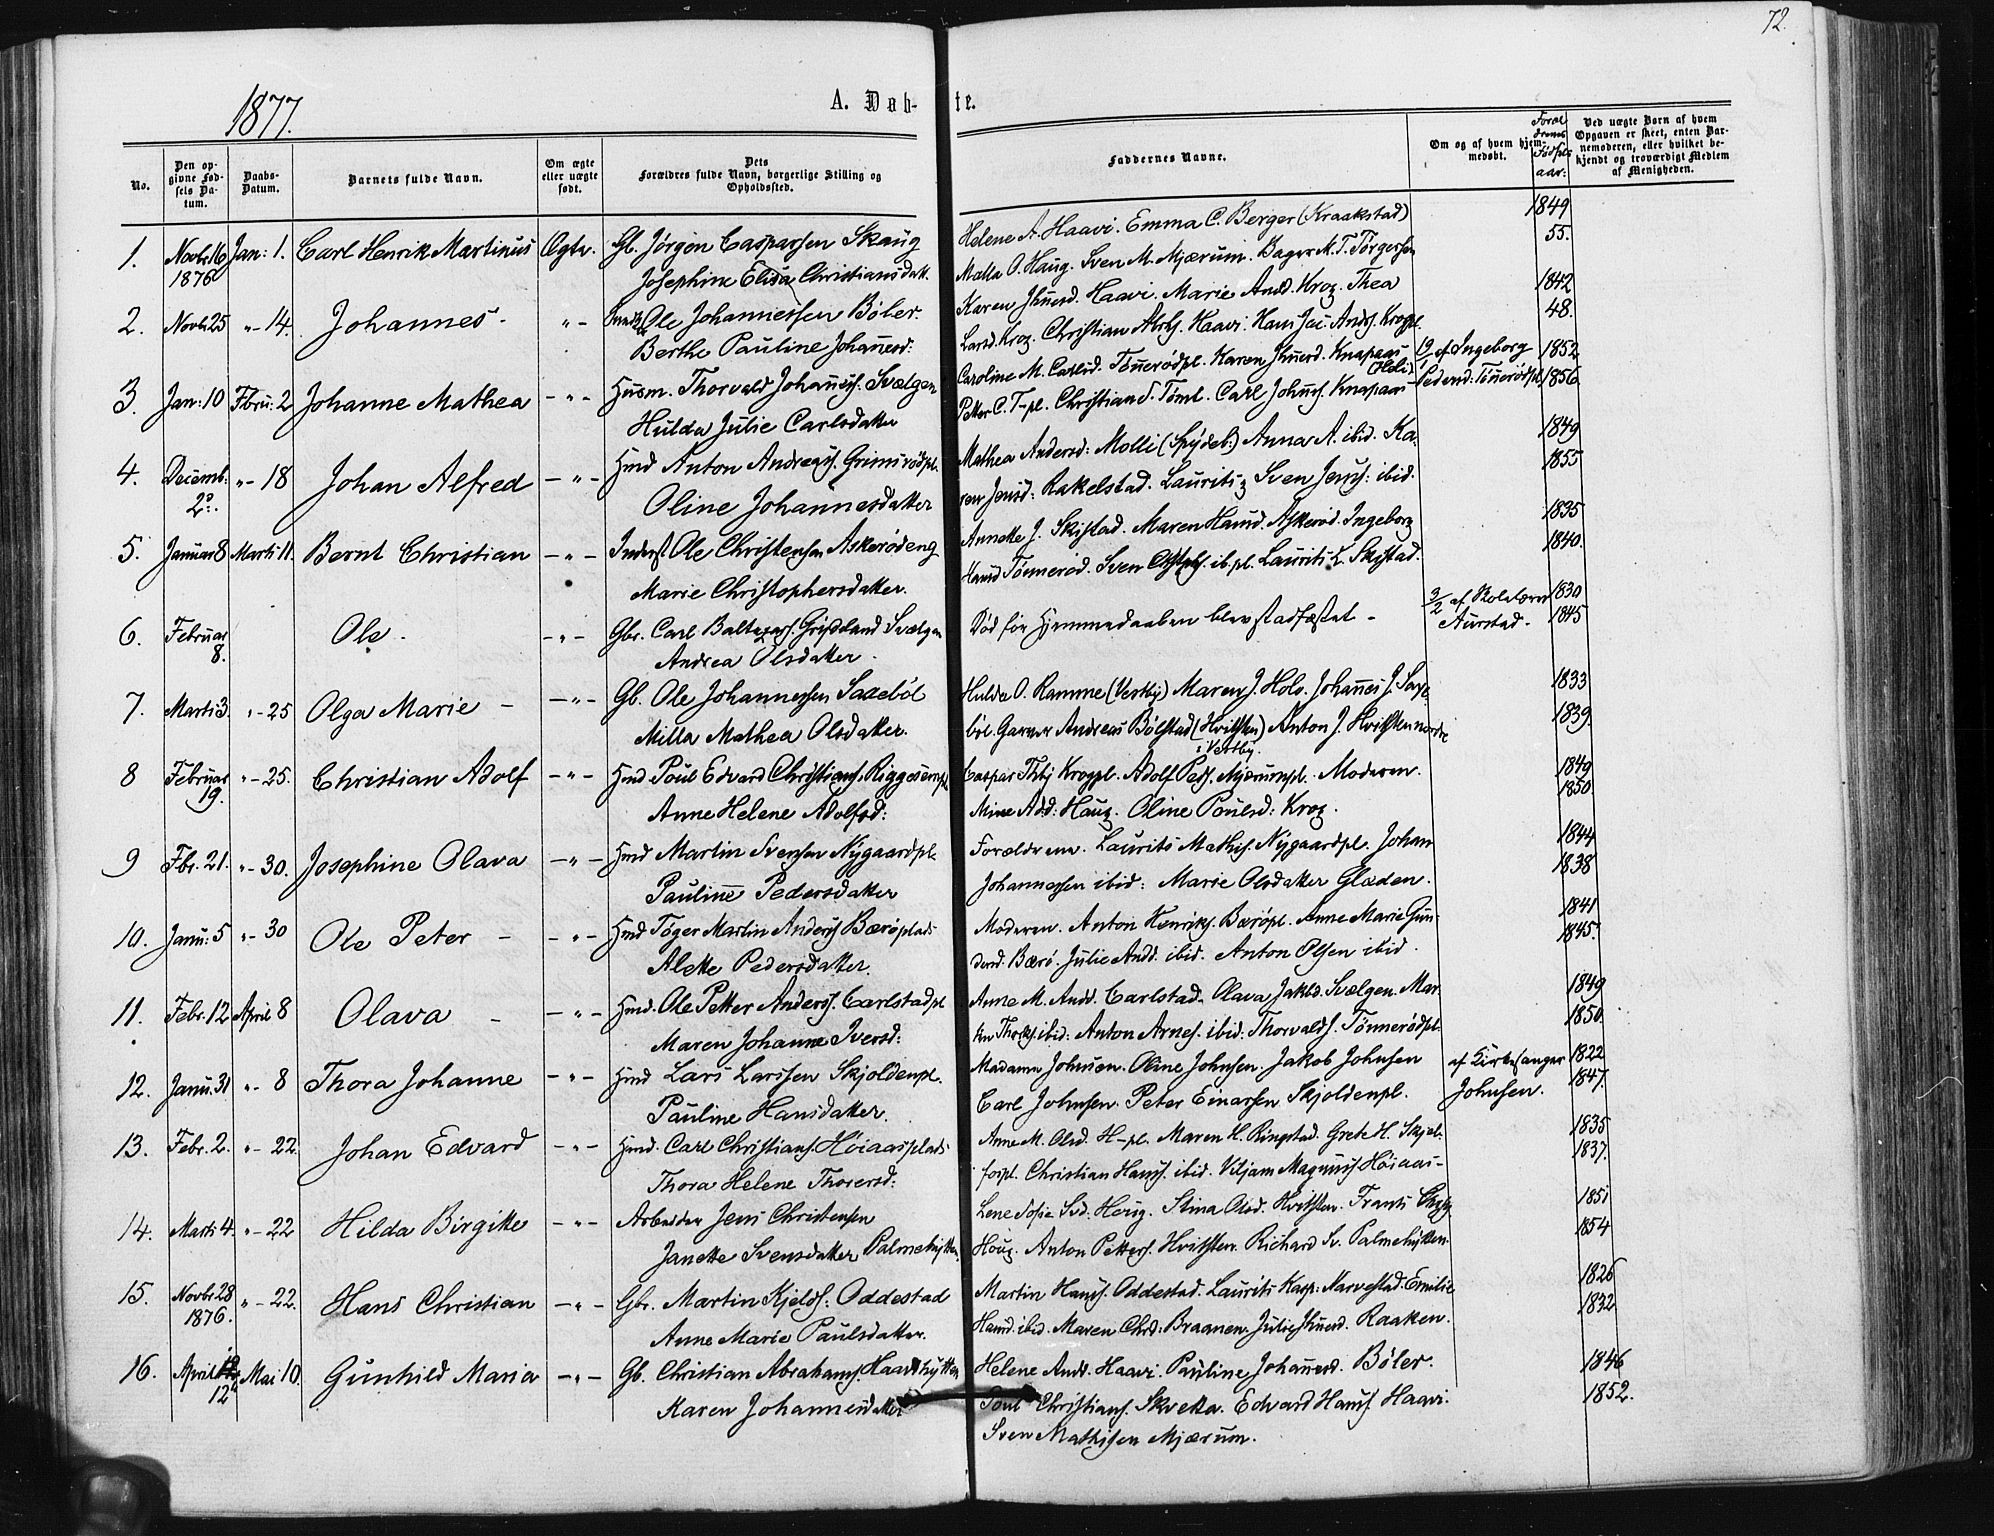 72.
1877.
A. Døb-te.
No.
Den opgivne Fødsels Datum.
Daabs-Datum.
Barnets fulde Navn.
Om ægte eller uægte født.
Dets Forældres fulde Navn, borgerlige Stilling og Opholdssted.
Faddernes Navne.
Om og af hvem hjemmedøbt.
Forældrenes Fødselsaar:
Ved uægte Børn af hvem Opgaven er skeet, enten Barnemoderen, eller hvilket bekjendt og troværdigt Medlem af Menigheden.
1. Novbr. 16 1876 Jan: 1. Carl Henrik Martinus Ægte. Gb. Jörgen Casparssen Skaug Helene A. Haavi. Emma C. Berger (Kraakstad) 1849
Josephine Elisa Christiansdatt. Matla O. Haug. Sven M. Mjærum. Bager M. T. Törgersen 55.
2. Novbr. 25 "-14. Johannes - "- Ole Johannessen Böler. Karen Jhnesd. Haavi. Marie Andd. Krog. Thea 1842
Berthe Pauline Johannesd: Larsd. Krog. Christian Abrhs. Haavi. Hans Jac. Ands. Krogpl. 48.
3. Jan: 10 Fbru: 2 Johanne Mathea -"- Husm. Thorvald Johaness. Svælgen Caroline M. Carlsd. Tönnerödpl. Karen Jhnesd. Knapaas af Ingeborg 1852
Hulda Julie Carlsdatter Petter C. T-pl. Christian S. Töml. Carl Johns. Knapaas Pedersd: Tönnerödpl. 1856
4. Decemb: 2. "-18 Johan Alfred -"- Hmd Anton Andreass. Grimsrödpl. Mathea Andersd: Molli (Spydeb:) Anna A. ibid. Ka- 1849
Oline Johannesdatter ren Jensd: Rakelstad. Lauritz Sven Jenss: ibid. 1855
5. Januar 8 Marts 11. Bernt Christian -"- Inderst Ole Christensen Askerödeng Annette J. Skistad. Maren Hansd. Askeröd. Ingeborg 1835
Marie Christophersdatter. Hansd Tönneröd. Sven ib. pl. Laurits L Skistad. 1840.
6. Februar 8. Ole. -"- Gbr. Carl Baltzers. Gridsland Svælgen Död för Hjemmedaaben blev stadfæstet - 3/2 af 1830
Andrea Olsdatter. Aurstad. 1845
7. Marts 3. "-25 Olga Marie - -"- Gb. Ole Johannessen Saxeböl Hulda O. Ramme (Vestby) Maren J. Holo. Johannes J. Saxe- 1833
Milla Mathea Olsdatter. böl. Garver Andreas Bölstad (Hvitsten) Anton J. Hvitsten nordre i Vestby. 1839
8 Februar 19. "-25. Christian Adolf -"- Hmd Poul Edvard Christians. Riggesumpl. Caspar Thbj Krogpl. Adolf Peds. Mjærumpl. Moderen. 1849
Anne Helene Adolfsd: Mine Add: Haug. Oline Poulsd: Krog. 1850
9 Fbr. 21. "-30. Josephine Olava -"- Hmd Martin Svensen Nygaardpl. Forældrene. Laurits Mathis. Nygaardpl. Johan 1844
Pauline Pedersdatter Johannessen ibid: Marie Olsdatter Glæden. 1838
10. Janu: 5 "-30 Ole Peter - -"- Hmd Töger Martin Anders Bæröplads Moderen. Anton Henriks. Bæröpl. Anne Marie Gun- 1841
Alette Pedersdatter. dersd. Bærö. Julie Andd. ibid. Anton Olsen ibid. 1845.
11. Febr. 12 April 8 Olava - -"- Hmd. Ole Petter Anderss. Carlstadpl Anne M. Andd. Carlstad. Olava Jakbd. Svælgen. Mar- 1849
Maren Johanne Iversd: tin Thorks. ibid: Anton Arnes. ibid: Thorvalds. Tönnerödpl. 1850
12. Janu. 31 "-8 Thora Johanne -"- Hmd Lars Larssen Skjoldenpl. Madame Johnsen. Oline Johnsen. Jakob Johnsen af Kirkesanger 1822
Pauline Hansdatter. Carl Johnsen. Peter Einarsen Skjoldenpl. Johnsen. 1847.
13. Febr. 2. "-22. Johan Edvard -"- Hmd. Carl Christians. Höiaasplads Anne M. Olsd. H-pl. Maren H. Ringstad. Grete H. Skjel- 1835
Thora Helene Thorersd: fospl. Christian Hanss. ibid. Viljam Magnuss Höiaas- 1837.
14. Marts 4. "-22 Hilda Birgitte -"- Arbeider Jens Christensen Lene Sofie Svd. Haug. Stina Olsd. Hvitsten. Frants 1851
Janette Svensdatter Palmehytten. Houg. Anton Petters. Hvitsten. Richard Sv. Palmehytten. 1854
15. Novbr 28 1876. "-22. Hans Christian -"- Gbr. Martin Kjelds: Oddestad Martin Hanss. Oddestad. Laurits Kasp: Narvestad. Emilie 1826
Anne Marie Paulsdatter. Hansd. ibid. Maren Chrd: Braanen. Julie Jhnesd. Raaken. 1832
16. April 12 Mai 10. Gunhild Maria -"- Gb. Christian Abrahams. Haavihytten Helene Andd. Haavi. Pauline Johannesd. Böler. 1846
Karen Johannesdatter Poul Christians. Skvetta. Edvard Hanss Haavi. 1852.
Sven Mathisen Mjærum.